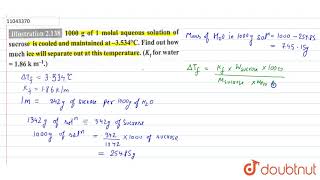 11043370
Illustration 2.138 1000 g of 1 molal aqueous solution of
sucrose is cooled and maintained at –3.534°C. Find out how
much ice will separate out at this temperature. (Kf for water
= 1.86 k m⁻¹.)
ΔTf = 3.534°C
Kf = 1.86 K/m
1m = 342g of sucrose per 1000g of H2O
1342g of solⁿ ≡ 342g of sucrose
1000g of solⁿ = 342/1342 × 1000 of sucrose
= 254.85g
Mass of H2O in 1000g solⁿ = 1000 - 254.85
= 745.15g
ΔTf = Kf × Wsucrose × 1000
Msucrose × W
doubtnut